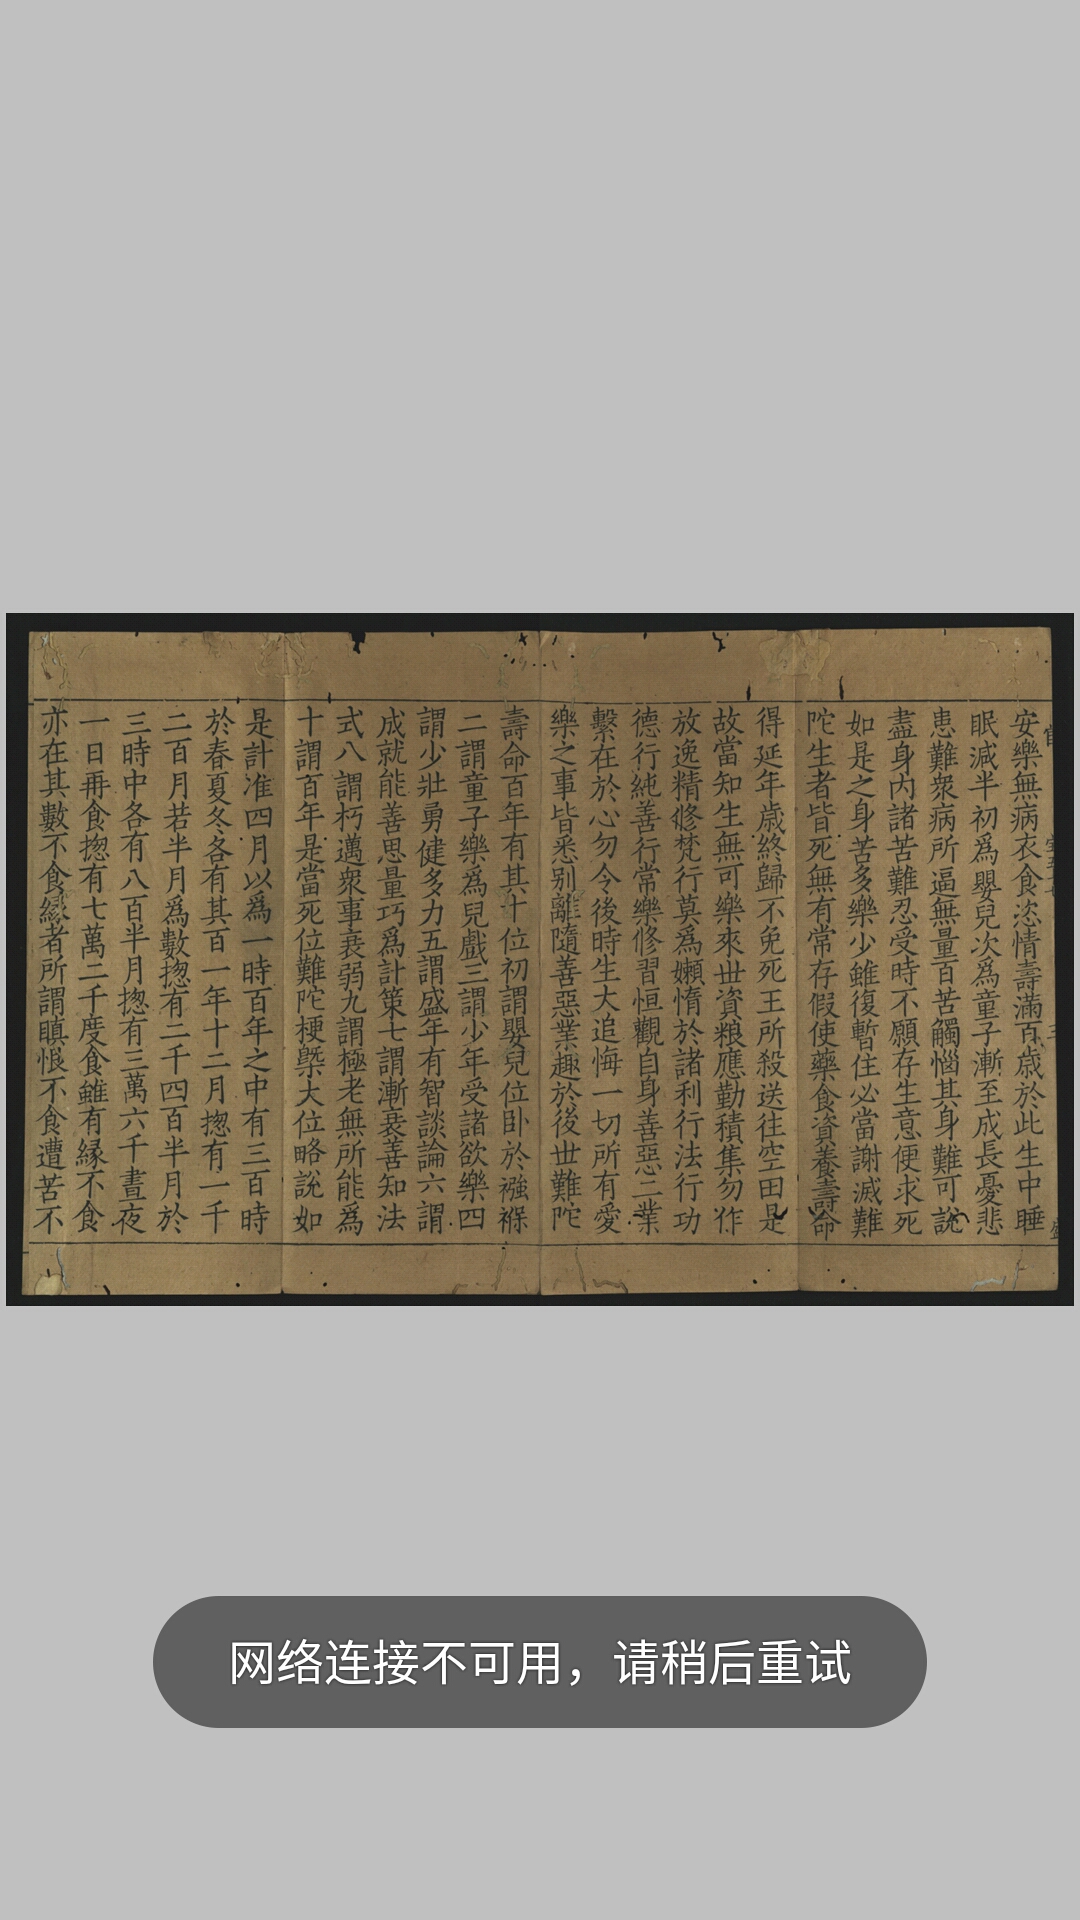 安樂無病衣食恣情壽滿百歳於此生中睡
眠減半初爲嬰兒次爲童子漸至成長憂悲
患難衆病所逼無量百苦觸惱其身難可說
盡身内諸苦難忍受時不願存生意便求死
如是之身苦多樂少雖復暫住必當謝滅難
陀生者皆死無有常存假使藥食資養壽命
得延年歳終歸不免死王所殺送往空田是
故當知生無可樂來世資粮應勤積集勿作
放逸精修梵行莫爲嬾惰於諸利行法行功
德行純善行常樂修習恒觀自身善惡二業
繫在於心勿令後時生大追悔一切所有愛
樂之事皆悉别離隨善惡業趣於後世難陀
壽命百年有其十位初謂嬰兒位卧於襁褓
二謂童子樂爲兒戲三謂少年受諸欲樂四
謂少壯勇健多力五謂盛年有智談論六謂
成就能善思量巧爲計策七謂漸衰善知法
式八謂朽邁衆事衰弱九謂極老無所能爲
十謂百年是當死位難陀梗槩大位略說如
是計准四月以爲一時百年之中有三百時
於春夏冬各有其百一年十二月揔有一千
二百月若半月爲數揔有二千四百半月於
三時中各有八百半月揔有三萬六千晝夜
一日再食揔有七萬二千度食雖有縁不食
亦在其數不食縁者所謂瞋恨不食遭苦不
网络连接不可用，请稍后重试